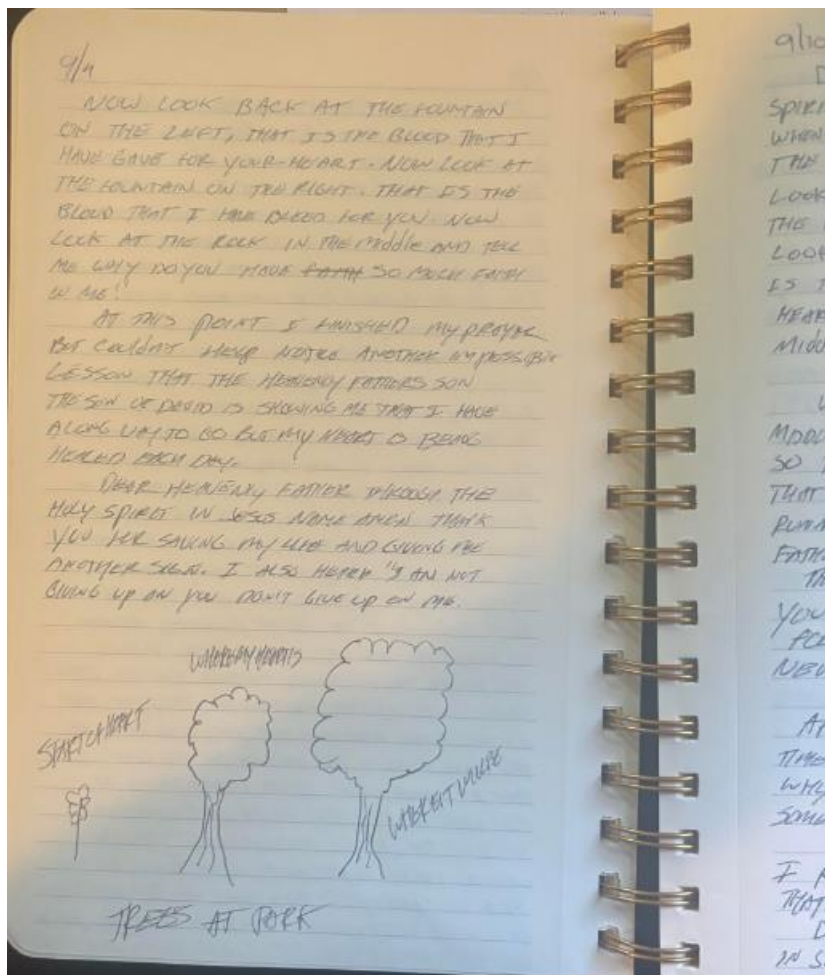 9/9
NOW LOOK BACK AT THE FOUNTAIN
ON THE LEFT, THAT IS THE BLOOD THAT I
HAVE GAVE FOR YOUR HEART. NOW LOOK AT
THE FOUNTAIN ON THE RIGHT. THAT IS THE
BLOOD THAT I HAVE BLEED FOR YOU. NOW
LOOK AT THE ROCK IN THE MIDDLE AND TELL
ME WHY DO YOU HAVE FAITH SO MUCH FAITH
IN ME!
AT THIS POINT I FINISHED MY PRAYER
BUT COULDN'T HELP NOTICE ANOTHER IMPOSSIBLE
LESSON THAT THE HEAVENLY FATHERS SON
THE SON OF DAVID IS SHOWING ME THAT I HAVE
ALONG WAY TO GO BUT MY HEART IS BEING
HEALED EACH DAY.
DEAR HEAVENLY FATHER THROUGH THE
HOLY SPIRIT IN JESUS NAME AMEN THANK
YOU FOR SAVING MY LIFE AND GIVING ME
ANOTHER SIGN. I ALSO HEARD "I AM NOT
GIVING UP ON YOU DON'T GIVE UP ON ME.
WHERE MY HEART IS
START OF HEART
WHERE IT WILL BE
TREES AT PARK
9/10
D
SPIRI
WHEN
THE
LOOK
THE
LOOK
IS T
HEAR
MIDD
MIDDL
SO
THAT
RUNN
FATHE
TH
YOU
FOL
NEV
AF
TIME
WHY
SOME
I
THAT
D
IN S